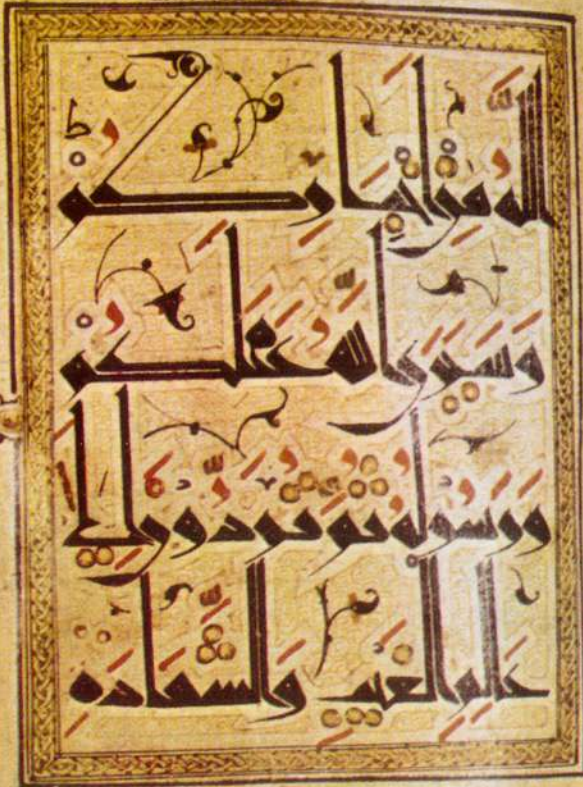 الله من اخباركم
وسيرى الله عملكم
ورسوله ثم تردون الى
علم الغيب والشهادة